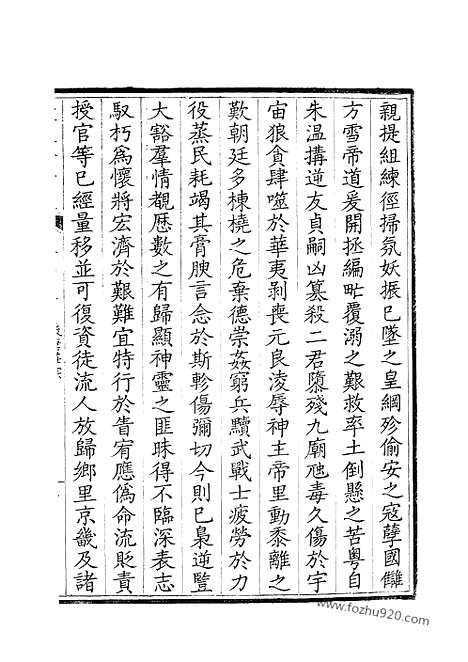 親提組練徑掃氛妖振已墜之皇綱殄偷安之寇孽國讎
方雪帝道爰開拯編甿覆溺之艱救率土倒懸之苦粵自
朱温搆逆友貞嗣凶篡殺二君隳殘九廟虺毒久傷於宇
宙狼貪肆噬於華夷剥喪元良淩辱神主帝里動黍離之
歎朝廷多棟橈之危棄德崇姦窮兵黷武戰士疲勞於力
役蒸民耗竭其膏腴言念於斯軫傷彌切今則已梟逆豎
大豁羣情覩厯數之有歸顯神靈之匪昧得不臨深表志
馭朽為懷將宏濟於艱難宜特行於眚宥應偽命流貶責
授官等已經量移並可復資徒流人放歸鄉里京畿及諸
www.fozhu920.com